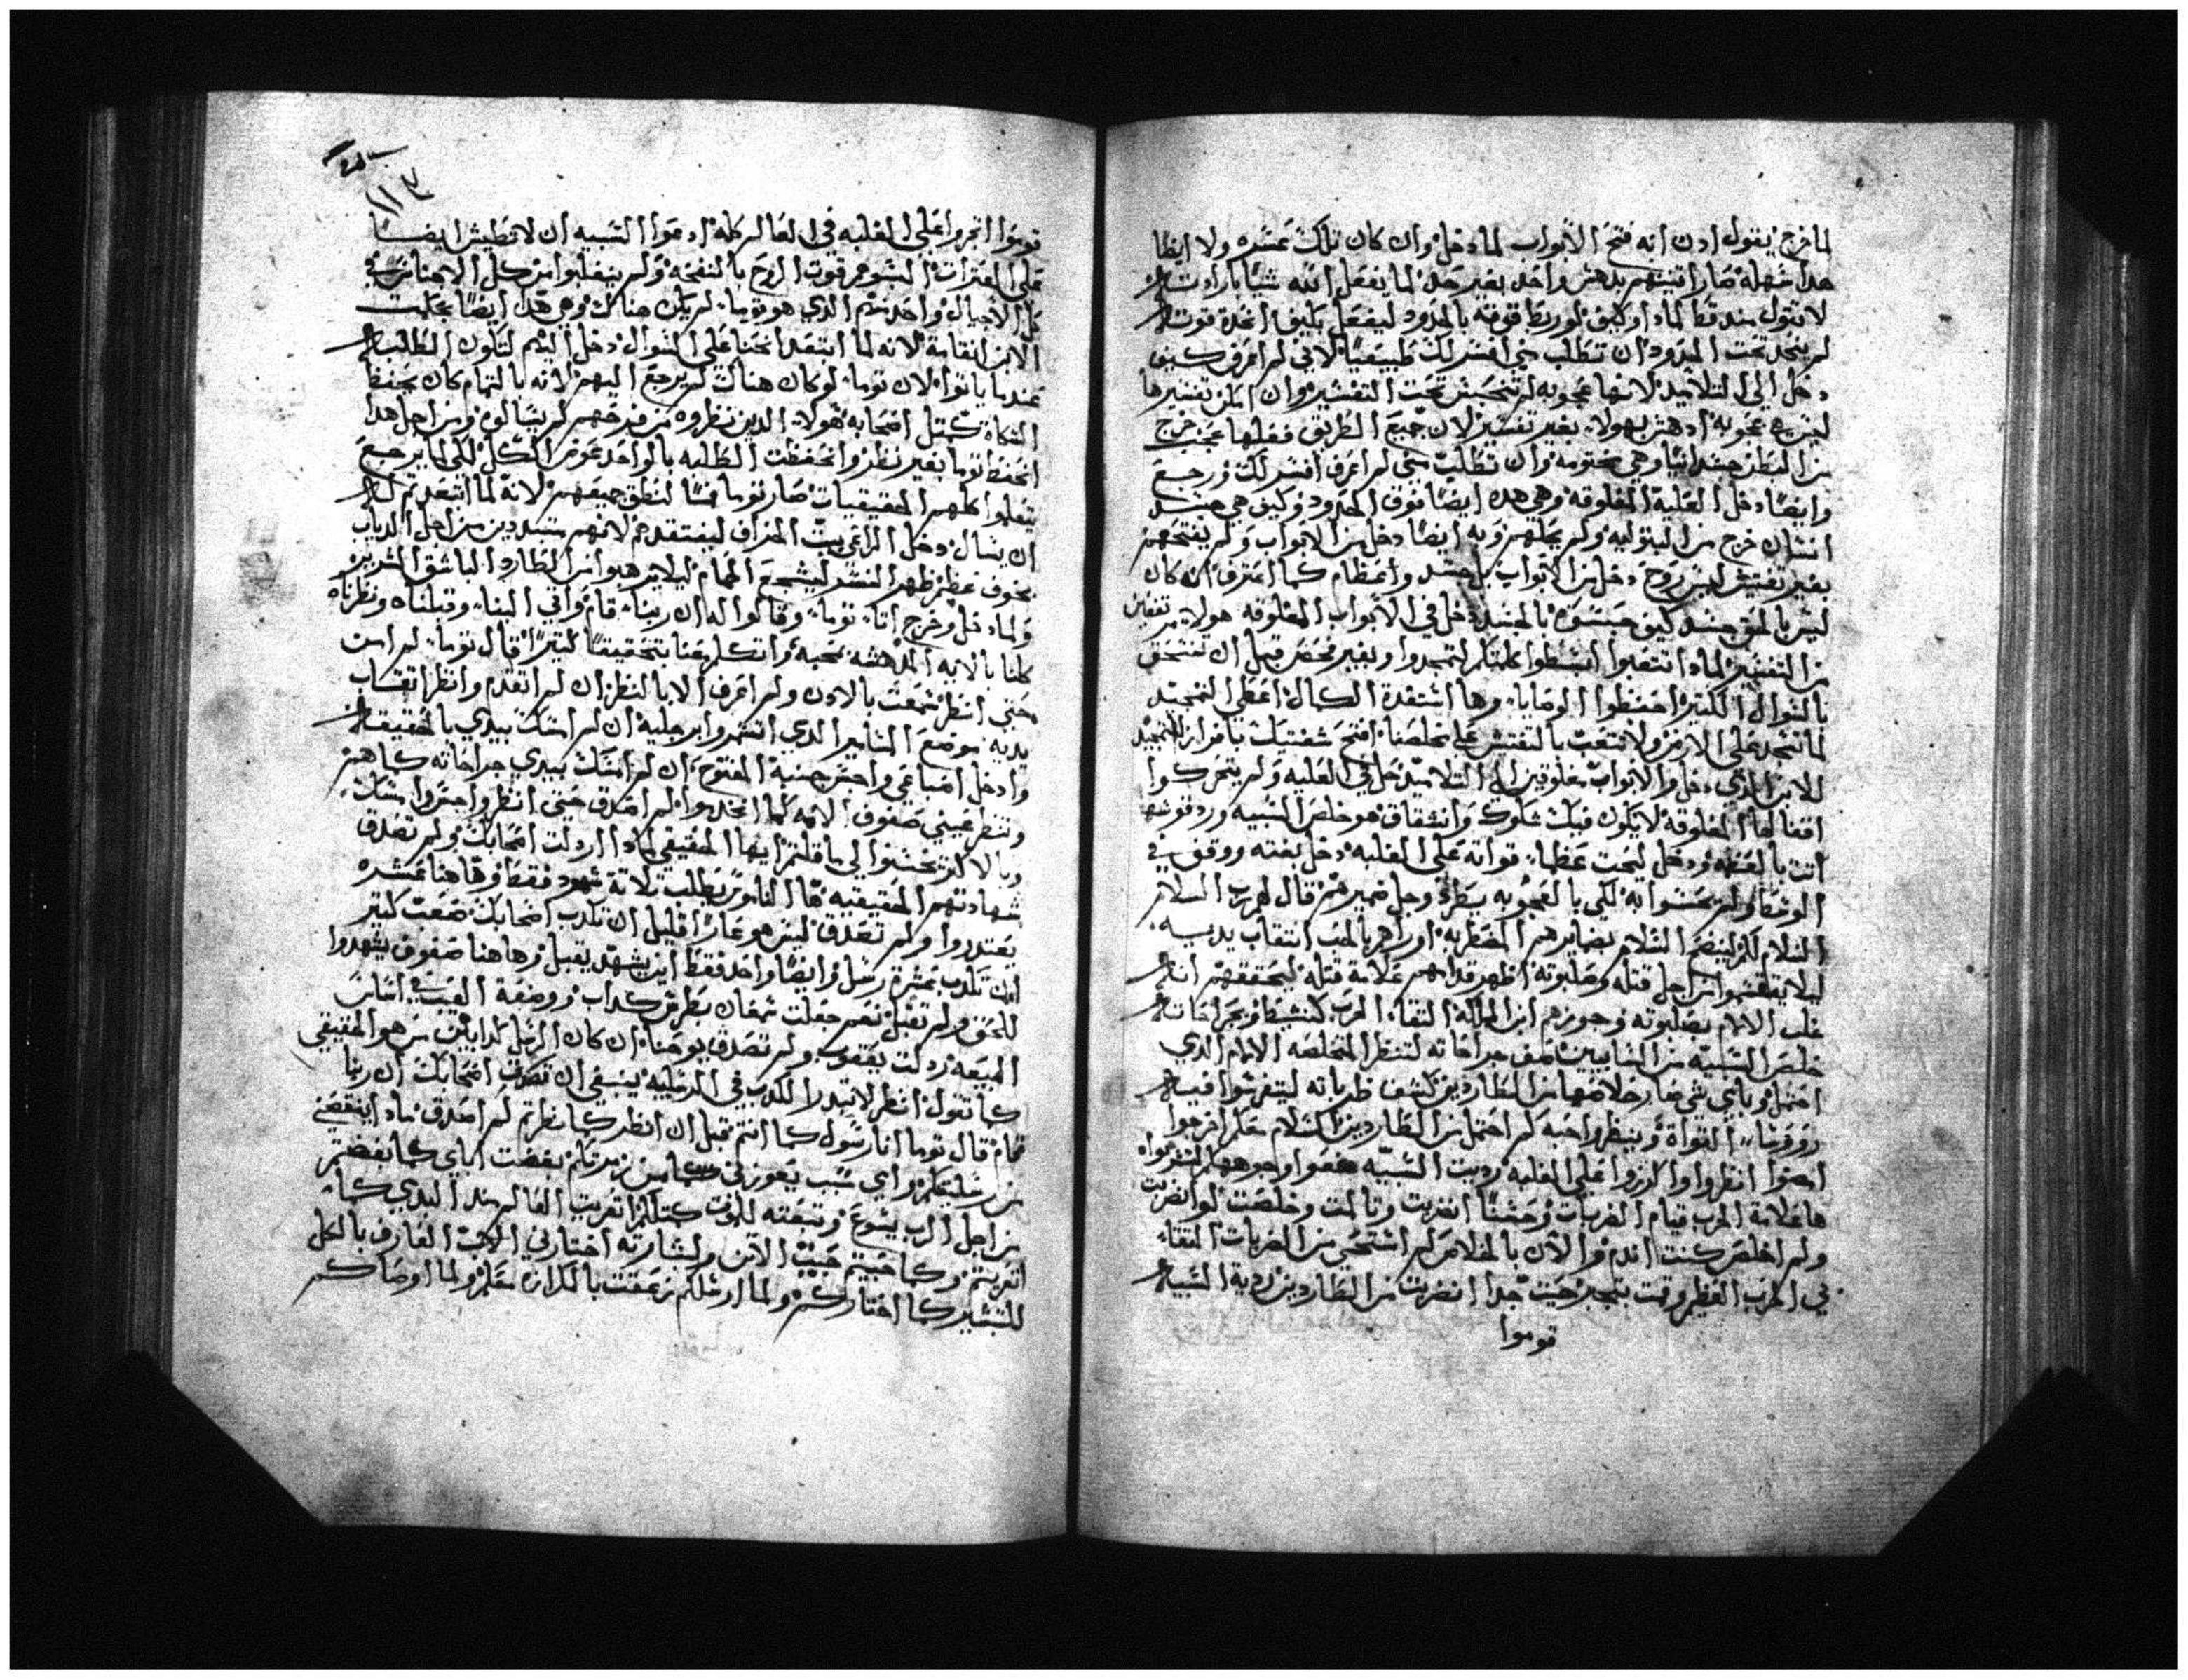 لما خرج يقول ادن انه فتح الابواب لما دخل وان كان تلك عسره ولا ايضا
هدا سهله صارا تنينهم بدهش واحد بغير حد لما يفعل الله شيا بارادته
لا تقول عنه قط لمادا وكيف لو ربط قوته بالحدود ليفعل بكيف اخدة قوته
لم ينحد تحت الحدود ان تطلب مني افسر لك طبيعيا لاني لم اعرف كيف
دخل الي التلاميد لانها عجوبه لم تنحبس تحت التفسير وان امكن تفسيرها
ليس هي عجوبه ادهش بهولا بغير تفسير لان جميع الطريق فعلها عجب خرج
من البطن جسدانيا وهي مختومه وان تطلب مني لم اعرف افسر لك ورجع
وايضا دخل العلية المغلوقه وهي هده ايضا فوق الحدود وكيف هي جسد
انسان خرج من البتوليه ولم يحلهم وبه ايضا دخل من الابواب ولم يفتحهم
بغير تفتيش ليس روح دخل من الابواب بل جسد واعظام كما اعترف انه كان
لبس بالحق جسد كيف حبسوه بالجسد دخل في الابواب المغلوقه هولا مرتفعين
من التفسير لمادا تتعبوا ابسطوا كلمتكم لتمجدوا وبغير فحص قبل ان تستحق
بالسوال الكتير احفظوا الوصايا وها استعدة الكمال اعطي التمجيد
لما تنحد علي الارض ولا تتعب بالتفتش علي مخلصنا افتح شفتيك باقرار التمجيد
للابن الدي دخل والابواب مغلوقين الي التلاميد دخل في العليه ولم يتحركوا
اقفالها المغلوقه لا يكون فيك شكوك وانشقاق هو خلص السبيه ورد قوتها
اتت بالعفه ودخل ليحت عظما قواته علي العليه دخل بغته ووقف في
الوسط ولم يحسوا به لكي بالعجوبه يطرد وجل ضميرهم قال لهم رب السلام
السلام لكم ليفتح السلام بضمايرهم المضطربه اوراهم بالحب اتقاب يديه
ليلا ينقسموا من اجل قتله وصلبوته اظهر قدامهم علامة قتله ليحققهم انه
غلب الالام بصلبوته وحوزهم ابن الملك التقاء الحرب كنشيط وبجراحاته
خلص السبيه من السابيين كشف جراحاته لتنظر المتخلصه الالام الدي
احتمل وباي شي صار خلاصها من الطاردين كشف ضرباته ليتفرسوا فيه
روفرسا القواة وينظروا حبه كم احتمل من الطاردين السلام معكم افرحوا
امضوا انظروا واكرزوا علي الغلبه رديت السبيه جمعوا وجوهها لتفرحوا
ها علامة الحرب قيام الضربات وحسنا انضربت وتالمت وخلصت لو انضربت
ولم اخلص كنت اندم والان بالخلاص لم استحي من الضربات التقاء
في الحرب العظيم وقمت بتمجيد حيث جدا انضربت من الطاردين ردية السبيه
قوموا
١١٣
قوموا اتجروا علي الغلبه في العالم كله ادعوا السبيه ان لا تطيش ايضا
علي العثرات البسوهم قوت الروح بالنفخه ولم ينغلبوا من كل الاجناس في
كل الاجيال واحد منهم الدي هو توما لم يكن هناك وهي هده ايضا بحكمت
الابن اتقانة لانه لما ابتعد انحنا علي السوال دخل اليهم لتكون الطلبه
عندما ياتوا لان توما لو كان هناك لم يرجع اليهم لانه بالتمام كان يحفظ
الشكاة كمتل اصحابه هولاء الدين نظروه من فرحهم لم يسالوه ومن اجل هدا
انحفظ توما بغير نظر وانحفظت الطلبه بالواحد عوض الكل لكي لما يرجع
يتعلموا كلهم الحقيقيات صار توما فما لنطق جميعهم لانه لما اتبعد تم له
ان يسال دخل الراعي بيت الخراف ليفتقدهم لانهم مبددين من اجل الدياب
بخوف عظم ظهر النسر ليشجع الحمام ليلا يرهبوا من الطارد الباشق الشرير
ولما دخل وخرج اتا توما وقالوا له ان ربنا قام واتي الينا وقبلناه ونظرناه
كلنا بالايه المدهشه بمحبه واتكلم معنا بتحقيقا كتيرا قال توما لم امن
حتي انظر سمعت بالادن ولم اعرف الا بالنظر ان لم اتقدم وانظر اتقاب
يديه موضع المسامير الدي انتمروا برجليه ان لم امسك بيدي بالحقيقه
وادخل اصابعي واجس جنبه المفتوح ان لم امسك بيدي جراحاته كما هم
وتنظر عيني صفوف الامه كما انخدموا لم اصدق حتي انظر واجس وامسك
وبالاكتر تحسنوا لي ما قلتم ايها الحقيقي لمادا اردلت اصحابك ولم تصدق
شهادتهم الحقيقيه ها الناموس يطلب تلاتة شهود فقط وها هنا عشره
يعتدروا ولم تصدق ليس هو عارا قليل ان تكدب اصحابك صعب كتير
ان تكدب عشرة رسل وايضا واحد فقط اين يشهد يقبل وها هنا صفوف يشهدوا
للحق ولم تقبل نعم جعلت شمعان بطرس كداب ووضعة العيب في اساس
البيعه ردلت يعقوب ولم تصدق يوحنا ان كان الرسل كدابين من هو الحقيقي
كما تقول انظر لا تبدرا الكدب في الرسليه ينبغي ان تصدق اصحابك ان ربنا
قام قال توما انا رسول كما انتم قبل ان انظر كما نظرتم لم اصدق مادا ينقصني
من رسليتكم واي سبب يعوزني كامن زمرتكم بغضت اباي كما بغضتم
من اجل الرب يشوع وتبعته للوقت كمتلكم اتغربت العالم مند البدي كما
اتغربتم وكما حبيتم حبيت الابن ولبشارته اختارني الاب العارف بالكل
للتبشير كما اختاركم ولما ارسلكم زعقت بالكرازه معكم ولما اوصاكم